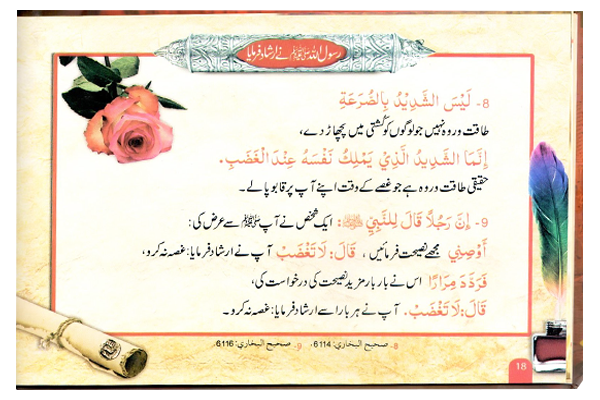 رسول اللہ ﷺ نے ارشاد فرمایا
8- لَيْسَ الشَّدِيْدُ بِالصُّرَعَةِ
طاقت ور وہ نہیں جو لوگوں کو کُشتی میں پچھاڑ دے،
اِنَّمَا الشَّدِيدُ الَّذِيْ يَمْلِكُ نَفْسَهُ عِنْدَ الْغَضَبِ.
حقیقی طاقت ور وہ ہے جو غصے کے وقت اپنے آپ پر قابو پالے۔
9- اِنَّ رَجُلاً قَالَ لِلنَّبِيِّ ﷺ: ایک شخص نے آپ ﷺ سے عرض کی:
أَوْصِنِي مجھے نصیحت فرمائیں، قَالَ: لَا تَغْضَبْ آپ نے ارشاد فرمایا: غصہ نہ کرو،
فَرَدَّدَ مِرَارًا اس نے بار بار مزید نصیحت کی درخواست کی،
قَالَ: لَا تَغْضَبْ. آپ نے ہر بار اسے ارشاد فرمایا: غصہ نہ کرو۔
8- صحيح البخاري: 6114، 9- صحيح البخاري: 6116،
18